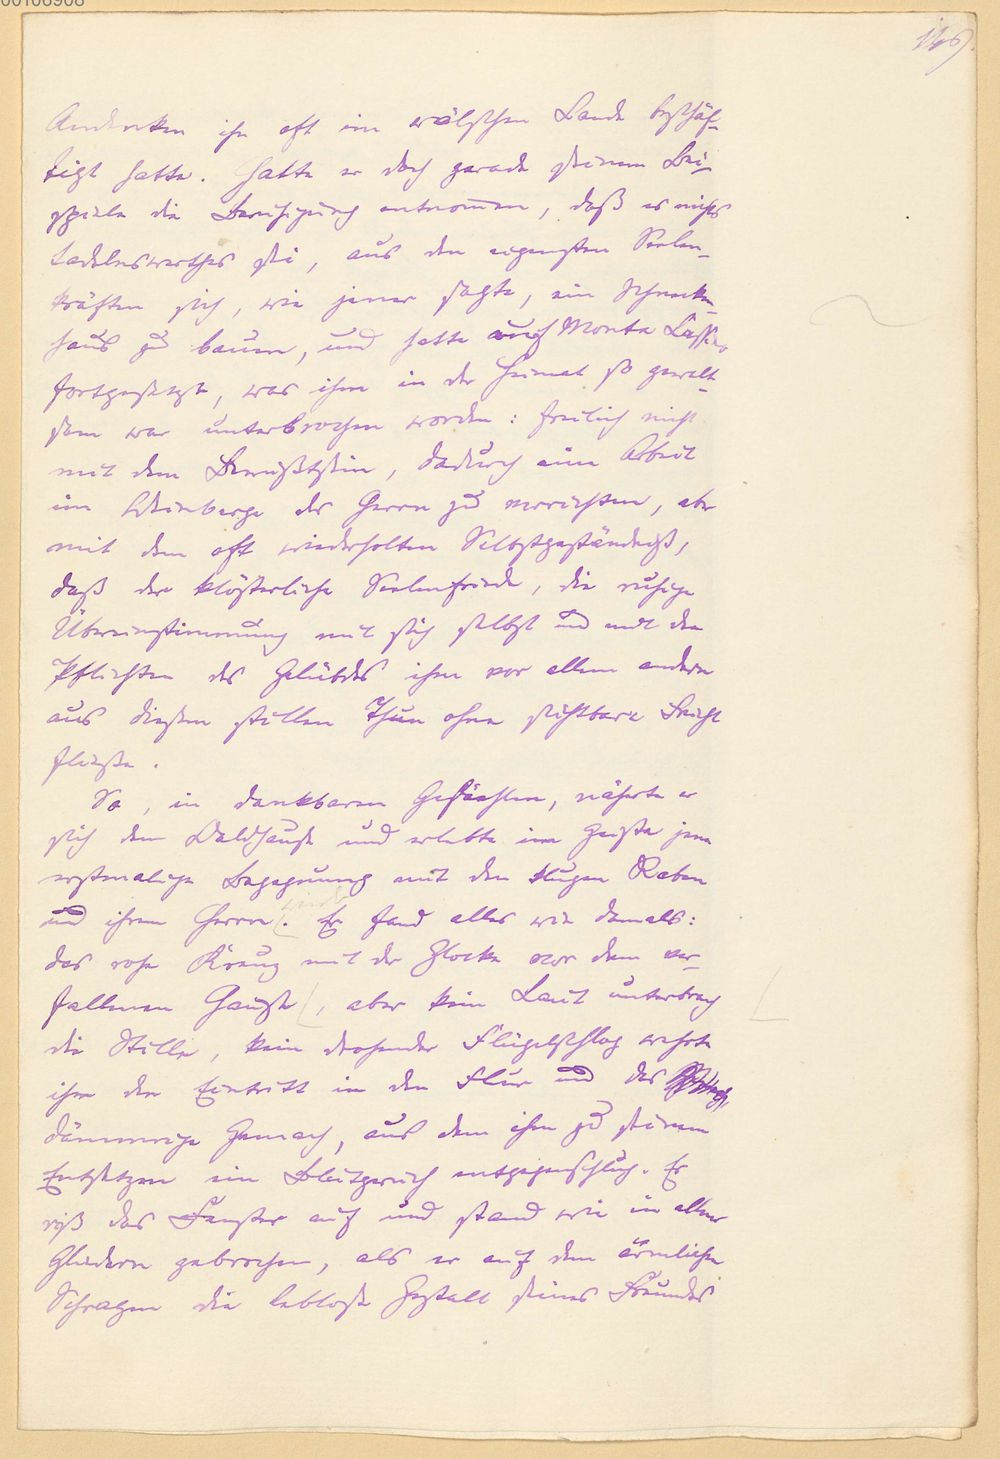 00106908
146).
Andenken ihn oft im wälschen Lande beschäf-
tigt hatte. Hatte er doch gerade seinem Bei-
spiele die Beruhigung entnommen, daß es nichts
tadelnswerthes sei, aus den eigensten Seelen-
kräften sich, wie jener sagte, ein Schnecken-
haus zu bauen, und hatte auch Monte Cassino
fortgesetzt, was ihm in der Heimat so gewalt-
sam war unterbrochen worden: freilich nicht
mit dem Bewußtsein, dadurch eine Arbeit
im Weinberge des Herrn zu verrichten, aber
mit dem oft wiederholten Selbstgeständniß,
daß der klösterliche Seelenfriede, die ruhige
Übereinstimmung mit sich selbst und mit den
Pflichten des Gelübdes ihm vor allem andern
aus diesem stillen Thun ohne sichtbare Frucht
fließe.
So, in dankbaren Gefühlen, näherte er
sich dem Waldhause und erlebte im Geiste jene
erstmalige Begegnung mit den klugen Raben
und ihrem Herrn. Er fand alles wie damals:
das rohe Kreuz mit der Glocke vor dem ver-
fallenen Hause, aber kein Laut unterbrach
die Stille, kein drohender Flügelschlag wehrte
ihm den Eintritt in den Flur und das
dämmerige Gemach, aus dem ihm zu seinem
Entsetzen ein Blutgeruch entgegenschlug. Er
riß das Fenster auf und stand wie in allen
Gliedern gebrochen, als er auf dem ärmlichen
Schragen die leblose Gestalt seines Freundes